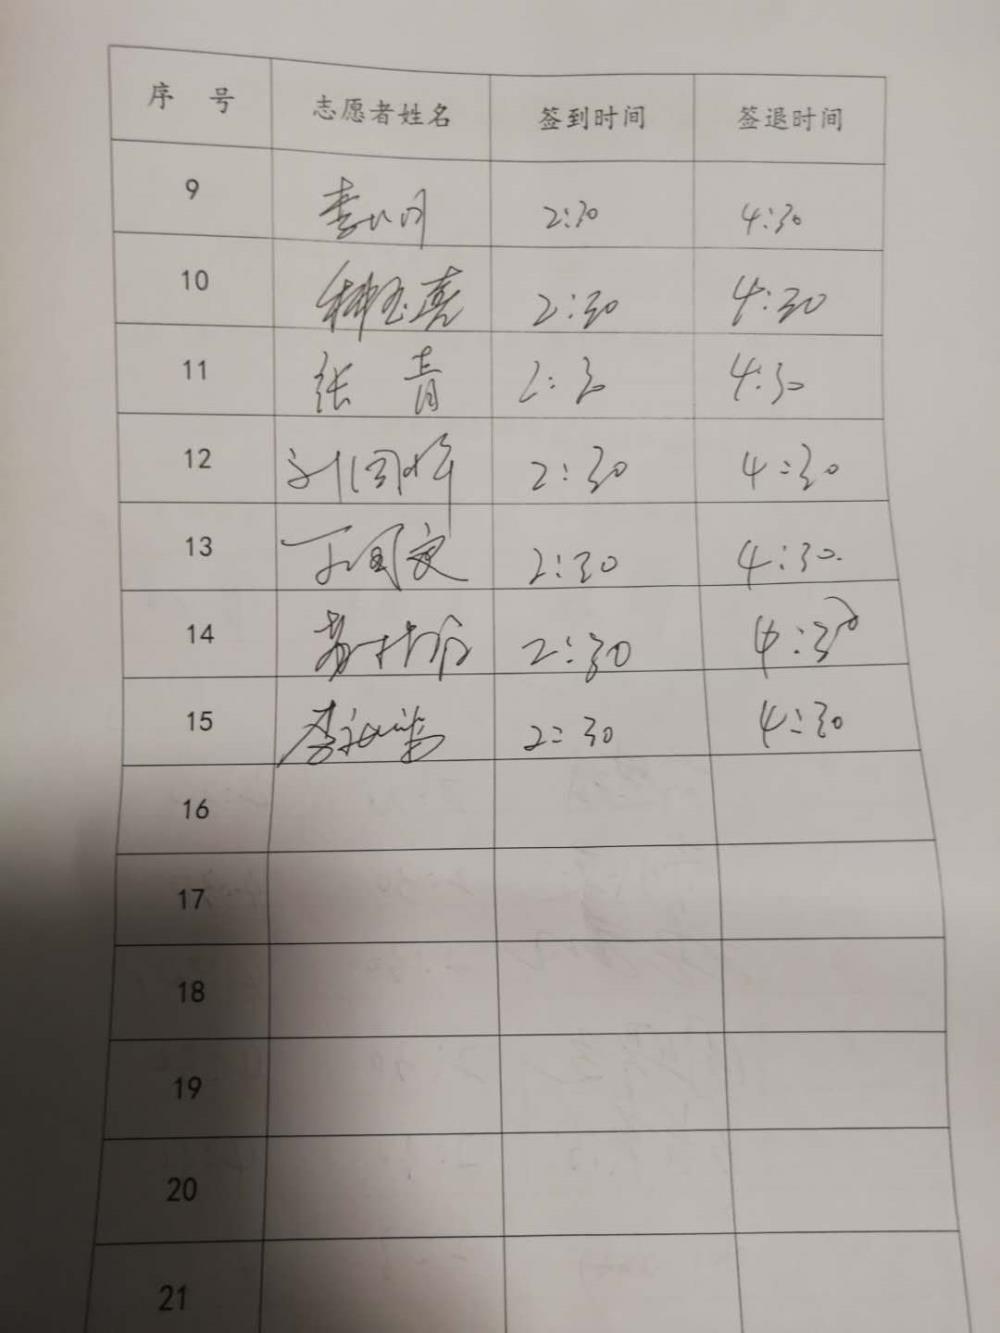 序 号 志愿者姓名 签到时间 签退时间
9 2:30 4:30
10 2:30 4:30
11 张 青 2:30 4:30
12 2:30 4:30
13 2:30 4:30.
14 2:30 4:30
15 2:30 4:30
16
17
18
19
20
21